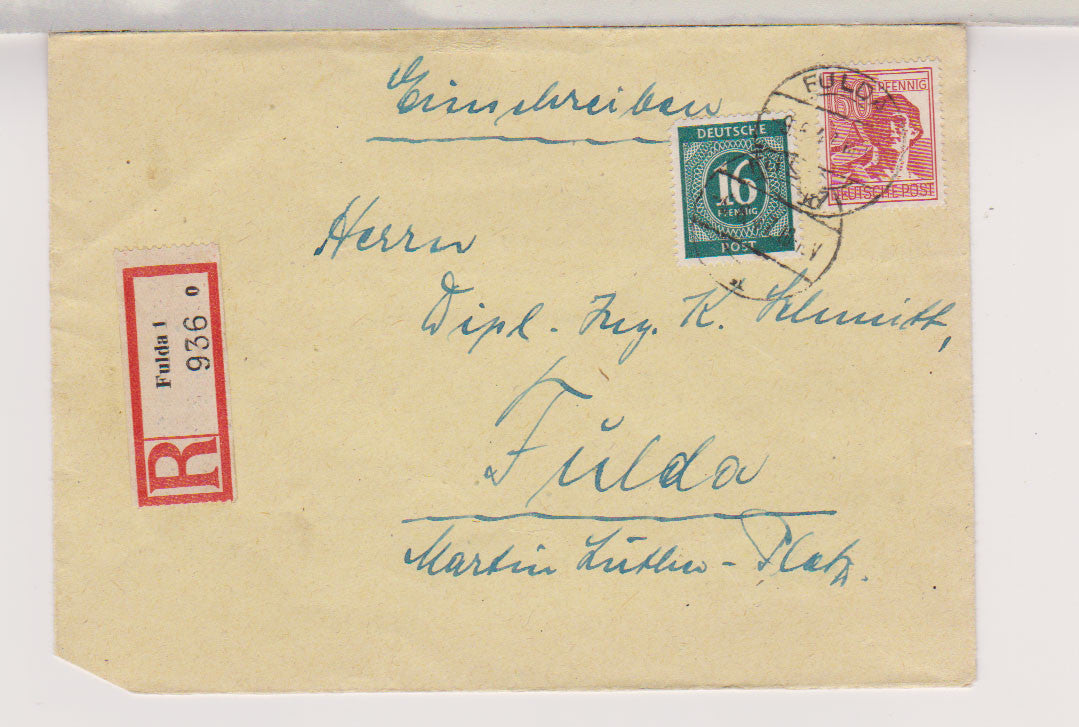 Einschreiben
FULDA
60 PFENNIG
DEUTSCHE POST
DEUTSCHE
16
PFENNIG
POST
Herrn
Dipl.-Ing. K. Schmitt,
Fulda
Martin Luther-Platz.
R
Fulda 1
936
o